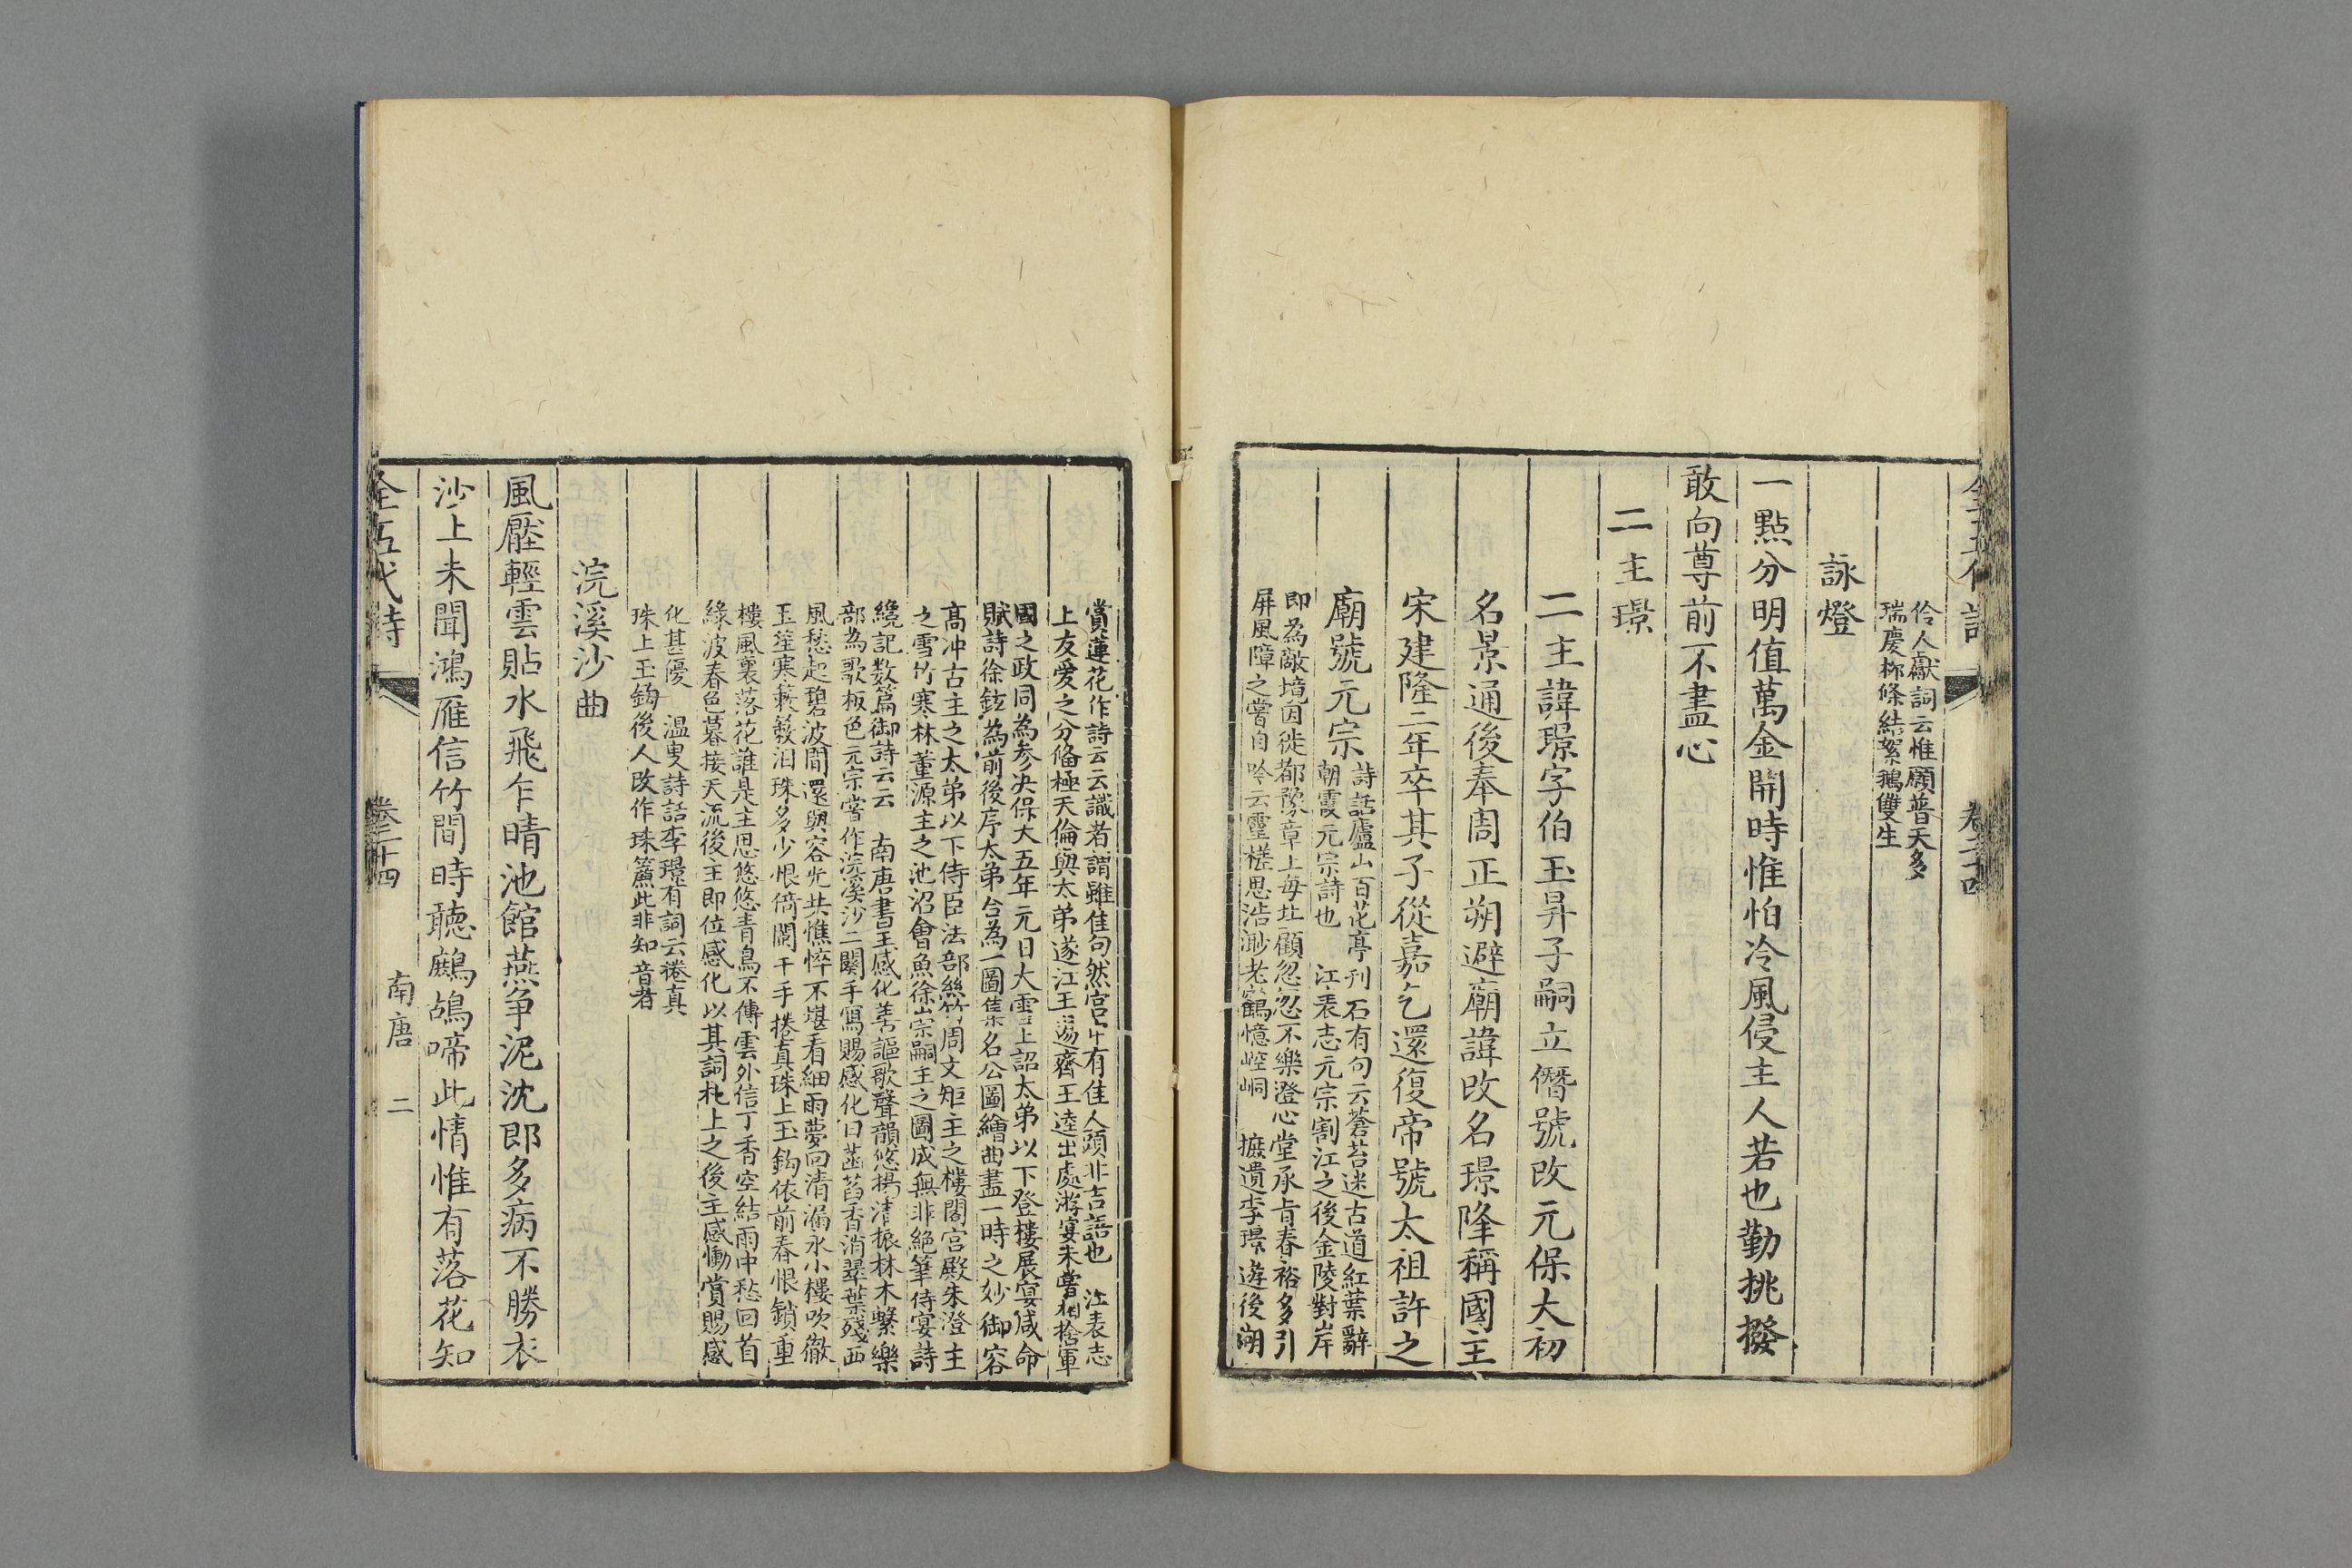 全五代詩　卷二十四
伶人獻詞云惟願普天多
瑞慶栁條結絮鵝雙生
詠燈
一㸃分明值萬金開時惟怕冷風侵主人若也勤挑撥
敢向尊前不盡心
二主璟
二主諱璟字伯玉昪子嗣立僭號改元保大初
名景通後奉周正朔避廟諱改名璟降稱國主
宋建隆二年卒其子從嘉乞還復帝號太祖許之
廟號元宗
詩話廬山百花亭刋石有句云蒼苔迷古道紅葉辭
朝霞元宗詩也　江表志元宗割江之後金陵對岸
即為敵境因徙都豫章上每北顧忽忽不樂澄心堂承旨春裕多引
屏風障之嘗自吟云靈槎思浩渺老鶴憶崆峒　摭遺李璟遊後湖
賞蓮花作詩云云識者謂雖佳句然宫中有佳人頭非吉語也　江表志
上友愛之分俻極天倫與太弟遂江王逿齊王逵出處遊宴未嘗相捨軍
國之政同為参决保大五年元日大雪上詔太弟以下登樓展宴咸命
賦詩徐鉉為前後序太弟合為一圖集名公圖繪曲盡一時之妙御容
髙冲古主之太弟以下侍臣法部絲竹周文矩主之樓閣宫殿朱澄主
之雪竹寒林董源主之池沼會魚徐崇嗣主之圖成無非絶筆侍宴詩
纔記数篇御詩云云　南唐書王感化善謳歌聲韻悠揚清振林木繋樂
部為歌板色元宗嘗作浣溪沙二闋手寫賜感化曰菡萏香消翠葉殘西
風愁起碧波間還與容光共憔悴不堪看細雨夢回清漏永小樓吹徹
玉笙寒簌簌泪珠多少恨倚闌干手捲真珠上玉鈎依前春恨鎖重
樓風裏落花誰是主思悠悠青鳥不傳雲外信丁香空結雨中愁回首
緑波春色暮接天流後主即位感化以其詞札上之後主感慟賞賜感
化甚優　温叟詩話李璟有詞云捲真
珠上玉鈎後人改作珠簾此非知音者
浣溪沙曲
風壓輕雲貼水飛乍晴池館燕争泥沈郎多病不勝衣
沙上未聞鴻雁信竹間時聽鷓鴣啼此情惟有落花知
全五代詩　卷二十四　南唐　二